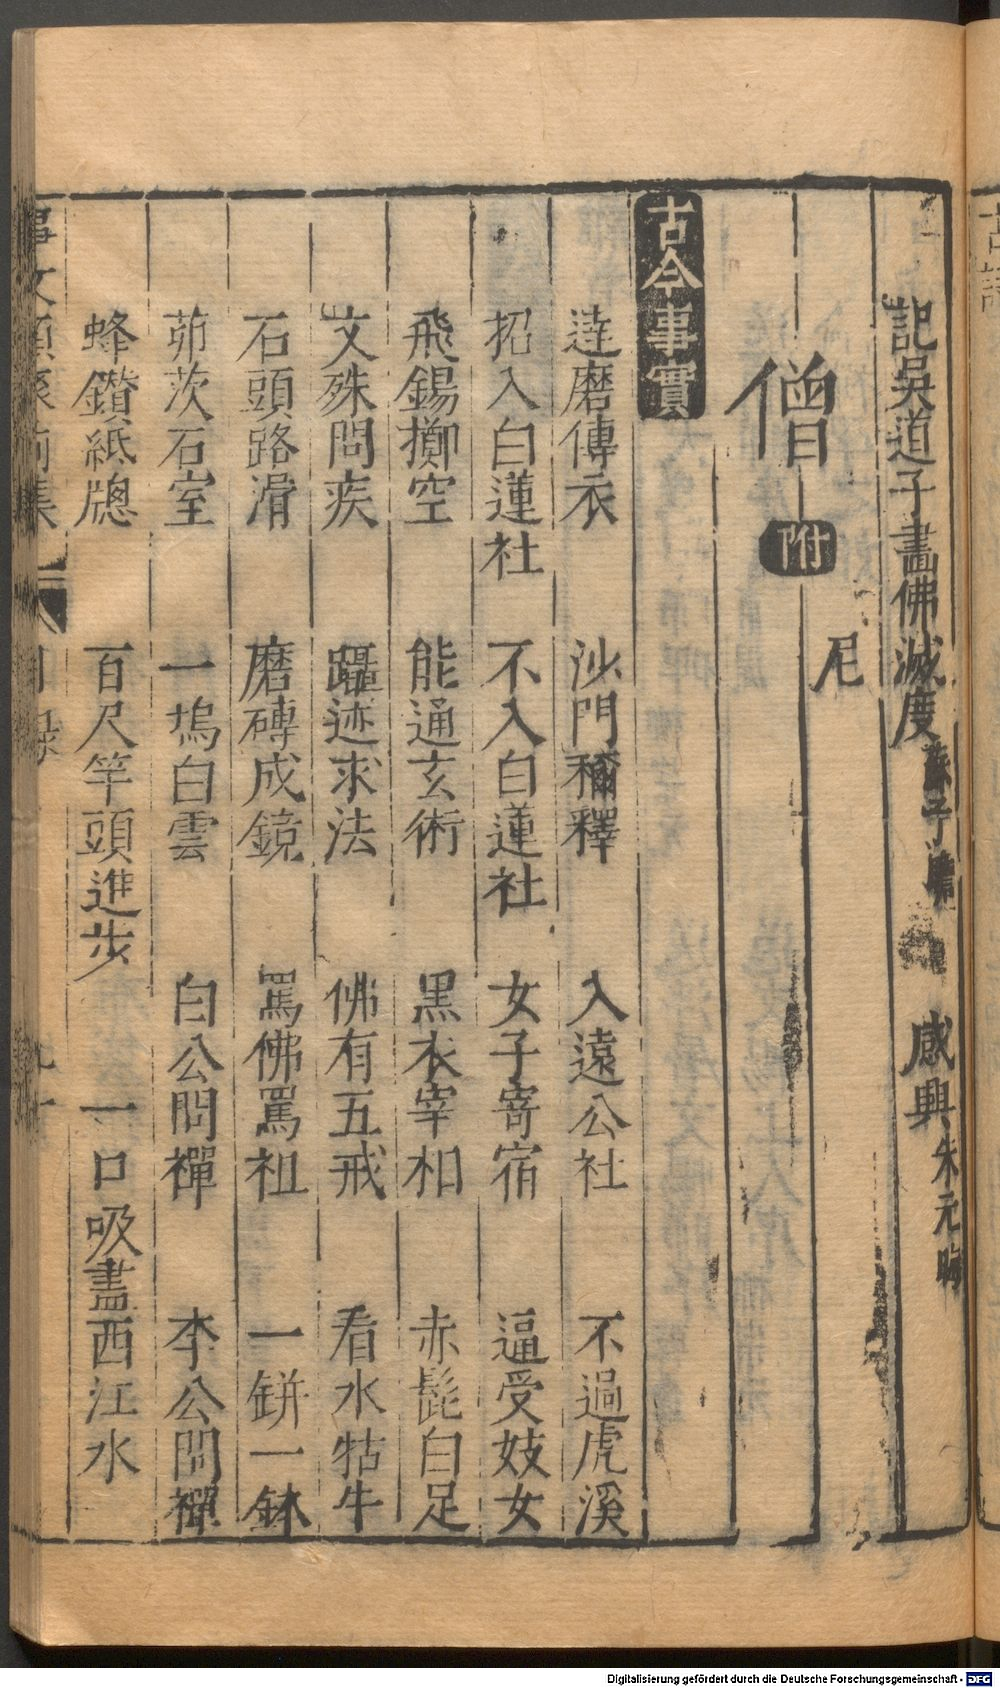 記吳道子畫佛滅度 蘇子瞻 感興 朱元晦
僧 附 尼
古今事實
達磨傳衣 沙門稱釋 入遠公社 不過虎溪
招入白蓮社 不入白蓮社 女子寄宿 逼受妓女
飛錫擲空 能通玄術 黑衣宰相 赤髭白足
文殊問疾 躡迹求法 佛有五戒 看水牯牛
石頭路滑 磨磚成鏡 罵佛罵祖 一鉼一鉢
茆茨石室 一塢白雲 白公問禪 李公問禪
蜂鑽紙牕 百尺竿頭進步 一口吸盡西江水
事文類聚前集 目錄
Digitalisierung gefördert durch die Deutsche Forschungsgemeinschaft - DFG